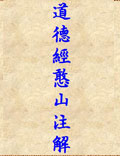 道德經憨山注解